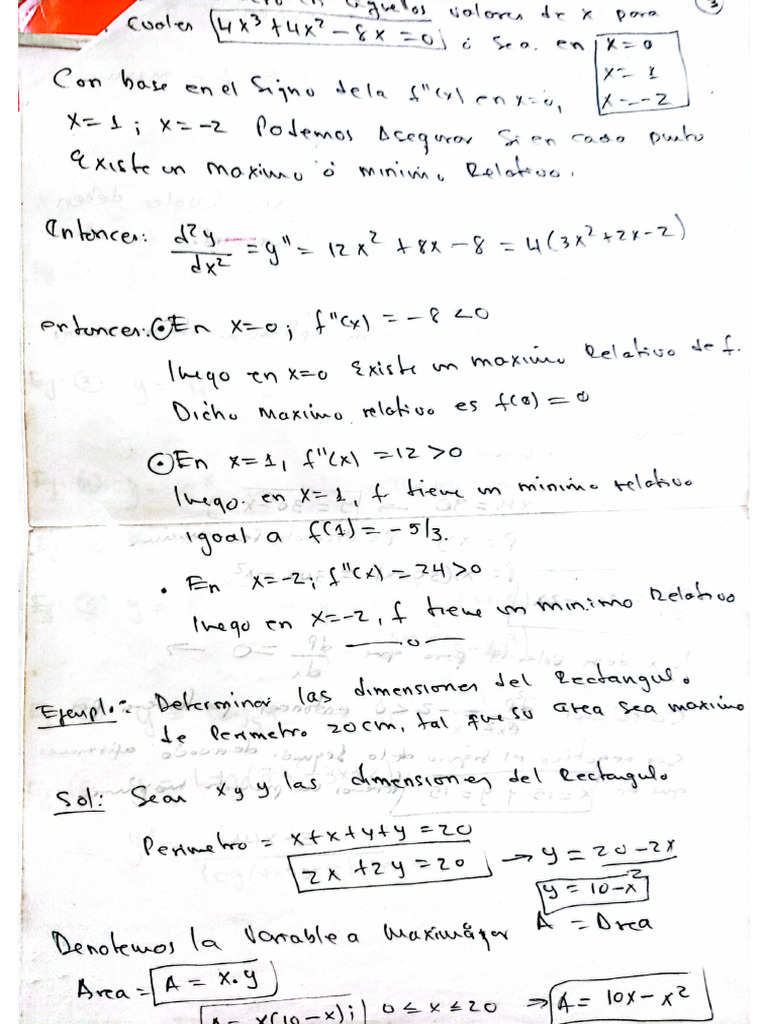 aquellos valores de x para
③
cuales 4x³ + 4x² - 8x = 0 ; ó sea. en x = 0
x = 1
x = -2
Con base en el signo de la f''(x) en x=0,
x = 1 ; x = -2 Podemos Asegurar si en cada punto
Existe un maximo ó minimo Relativo.
Entonces: d²y/dx² = y'' = 12x² + 8x - 8 = 4(3x² + 2x - 2)
entonces: ⊙ En x=0 ; f''(x) = -8 < 0
luego en x=0 Existe un maximo Relativo de f.
Dicho maximo relativo es f(0) = 0
⊙ En x=1, f''(x) = 12 > 0
luego en x=1, f tiene un minimo relativo
igual a f(1) = -5/3.
• En x=-2; f''(x) = 24 > 0
luego en x=-2, f tiene un minimo Relativo
— o —
Ejemplo: Determinar las dimensiones del Rectangulo
de Perimetro 20cm, tal que su area sea maximo
Sol: Sean x y y las dimensiones del Rectangulo
Perimetro = x+x+y+y = 20
2x + 2y = 20 → y = 20 - 2x / 2
y = 10 - x
Denotemos la Variable a Maximizar A = Area
Area = A = x.y
A = x(10-x); 0 ≤ x ≤ 20 ⇒ A = 10x - x²